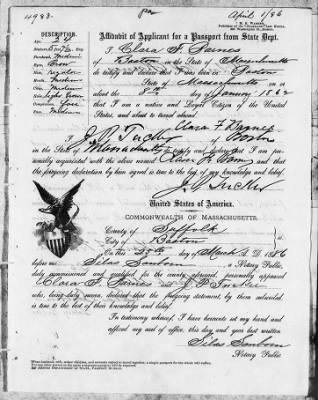 4988.
April 1/86
Affidavit of Applicant for a Passport from State Dept.
I, Clara F. Barnes
of Boston in the State of Massachusetts
do testify and declare that I was born in Boston
State of Massachusetts on or
about the 8th day of January 1862
that I am a native and Loyal Citizen of the United
States, and about to travel abroad.
Clara F Barnes
I, J. P. Tucker of Boston
in the State of Massachusetts testify and declare that I am per-
sonally acquainted with the above named Clara F Barnes and that
the foregoing declaration by her signed is true to the best of my knowledge and belief.
J. P. Tucker
United States of America.
COMMONWEALTH OF MASSACHUSETTS.
County of Suffolk
City of Boston
On this day of March A. D. 1886
before me Silas Sanborn Notary Public,
duly commissioned and qualified for the county aforesaid, personally appeared
Clara F. Barnes and J. P. Tucker
who, being duly sworn, declared that the foregoing statement, by them subscribed
is true to the best of their knowledge and belief.
In testimony whereof, I have hereunto set my hand and
affixed my seal of office, this day and year last written
Silas Sanborn
Notary Public.